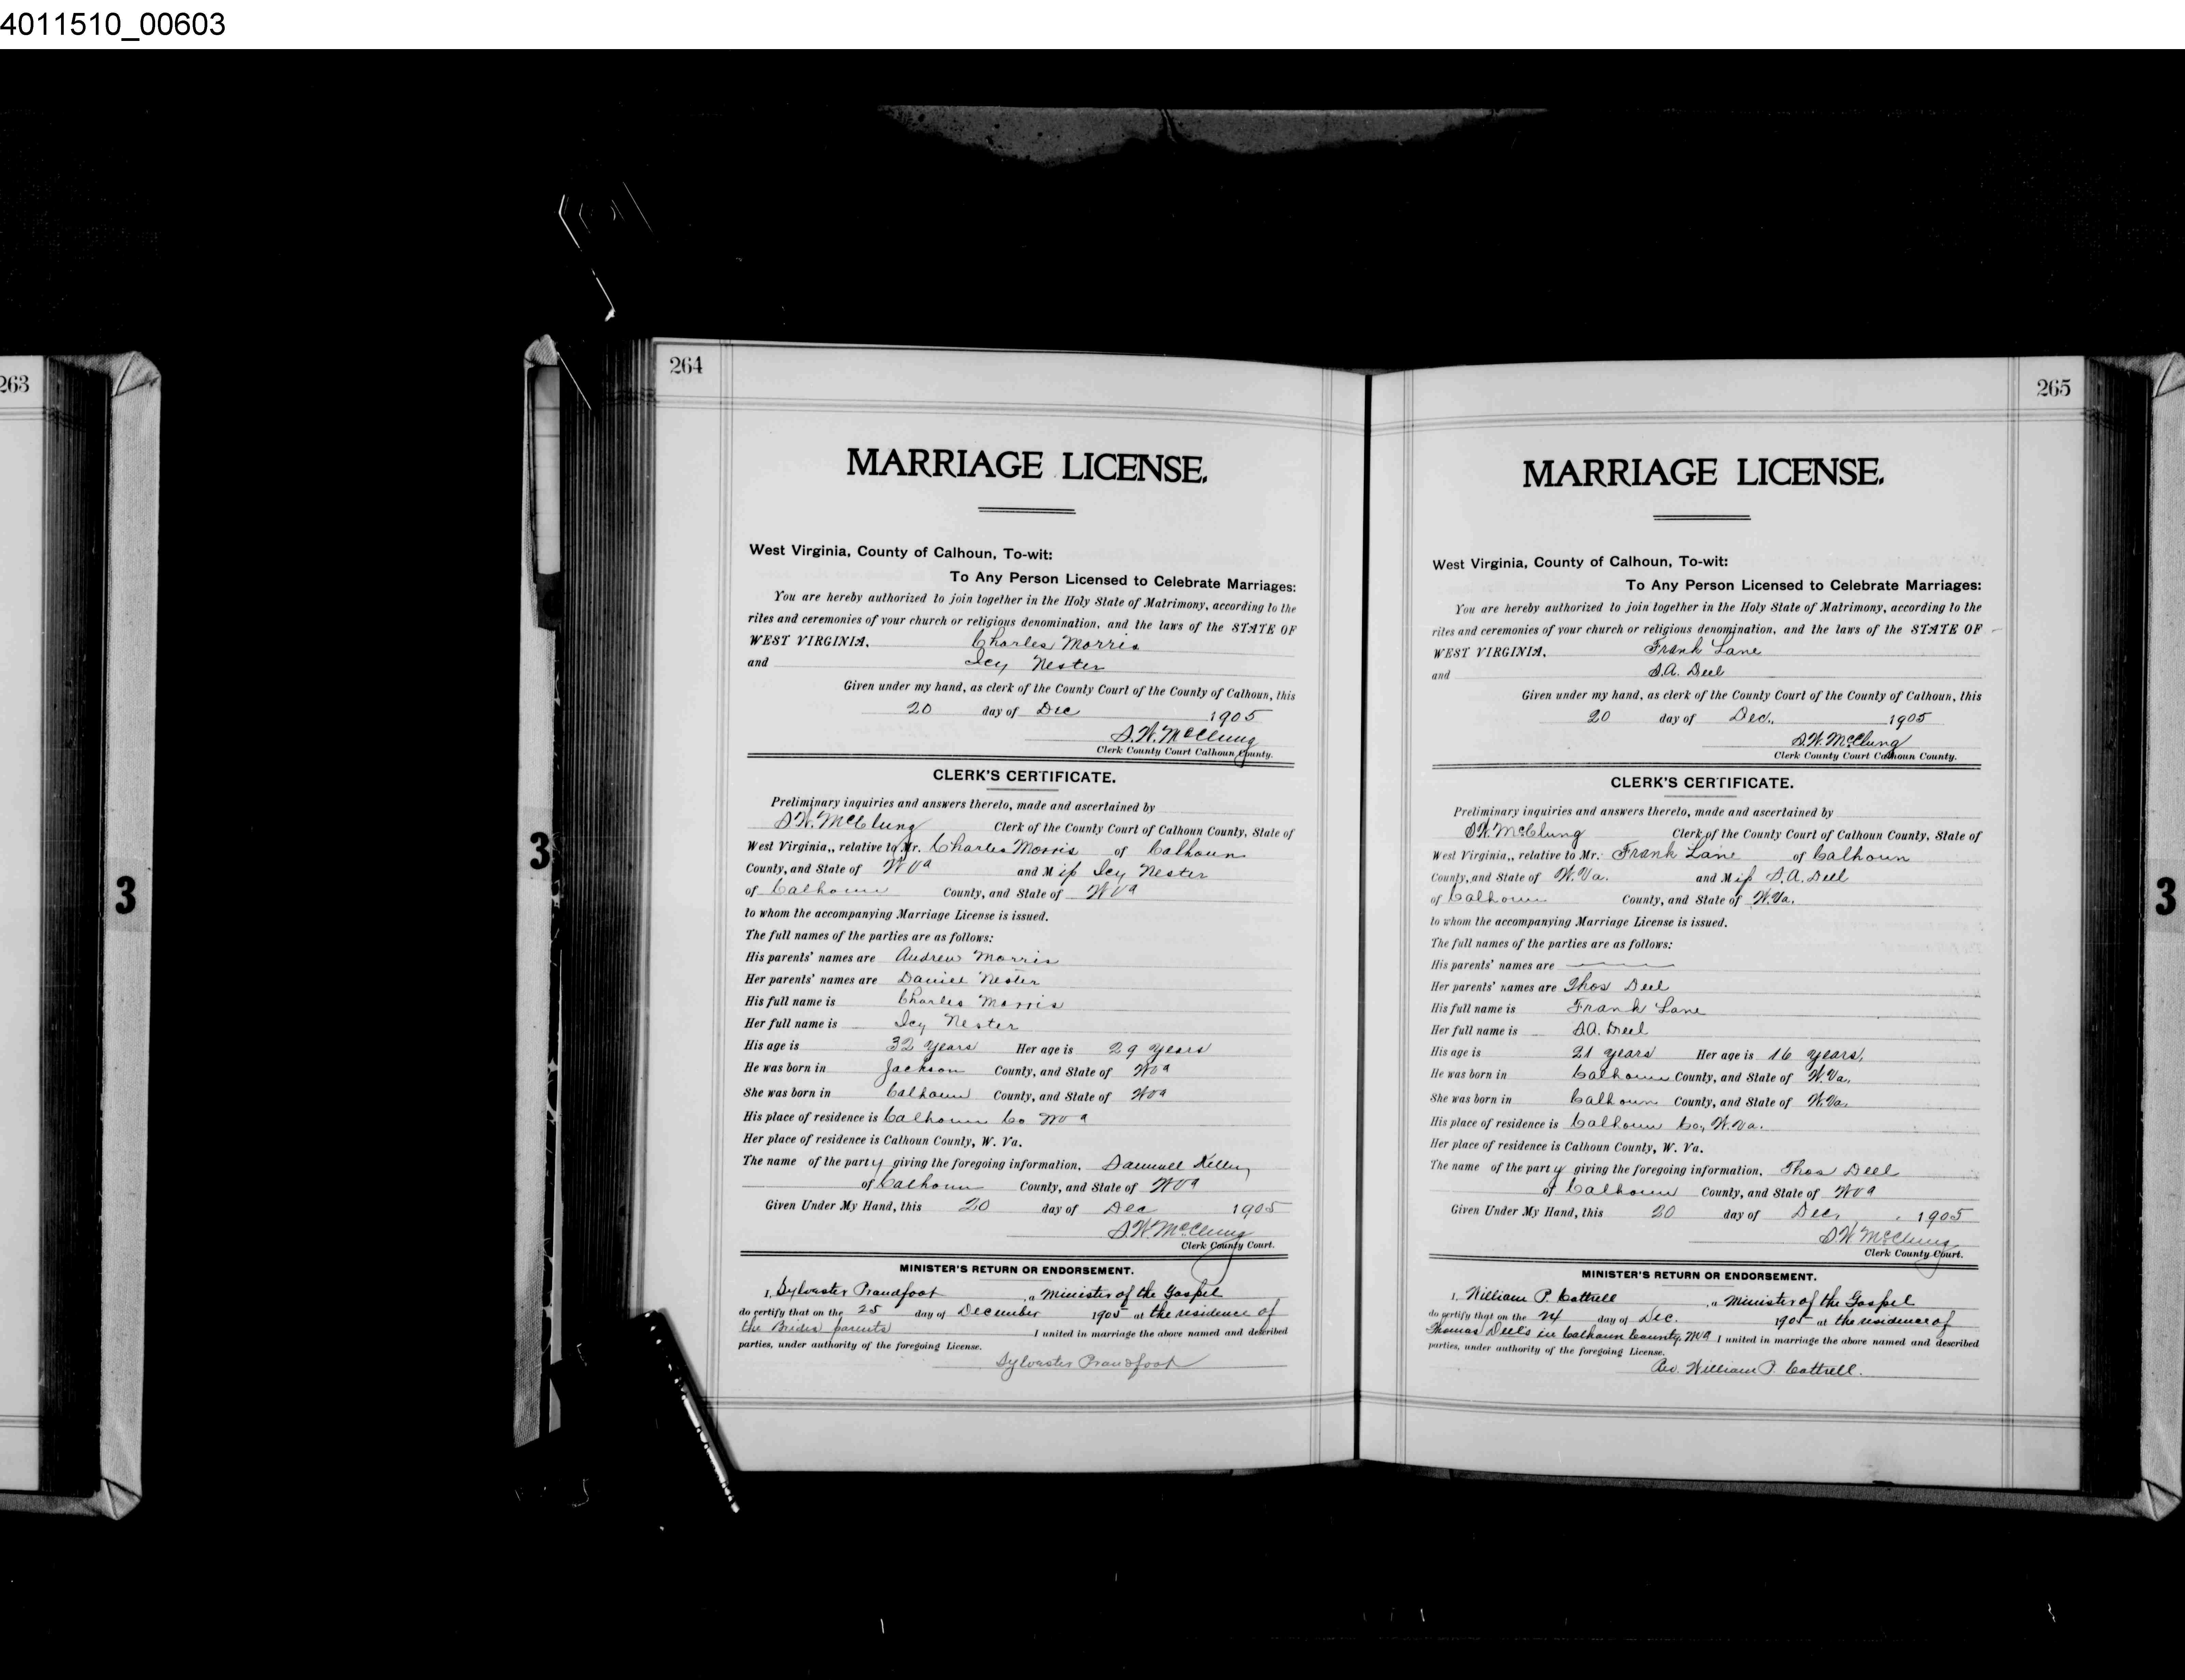 4011510_00603
263
3
3
264
MARRIAGE LICENSE.
West Virginia, County of Calhoun, To-wit:
To Any Person Licensed to Celebrate Marriages:
You are hereby authorized to join together in the Holy State of Matrimony, according to the
rites and ceremonies of your church or religious denomination, and the laws of the STATE OF
WEST VIRGINIA, Charles Morris
and Icy Nester
Given under my hand, as clerk of the County Court of the County of Calhoun, this
20 day of Dec 1905
S.W. McClung
Clerk County Court Calhoun County.
CLERK'S CERTIFICATE.
Preliminary inquiries and answers thereto, made and ascertained by
S.W. McClung Clerk of the County Court of Calhoun County, State of
West Virginia,, relative to Mr. Charles Morris of Calhoun
County, and State of W Va and Miss Icy Nester
of Calhoun County, and State of W Va
to whom the accompanying Marriage License is issued.
The full names of the parties are as follows:
His parents' names are Andrew Morris
Her parents' names are Daniel Nester
His full name is Charles Morris
Her full name is Icy Nester
His age is 32 Years Her age is 29 Years
He was born in Jackson County, and State of W Va
She was born in Calhoun County, and State of W Va
His place of residence is Calhoun Co W Va
Her place of residence is Calhoun County, W. Va.
The name of the party giving the foregoing information, Samuell Kelley
of Calhoun County, and State of W Va
Given Under My Hand, this 20 day of Dec 1905
S.W. McClung
Clerk County Court.
MINISTER'S RETURN OR ENDORSEMENT.
I, Sylvester Proudfoot, a Minister of the Gospel
do certify that on the 25 day of December 1905 at the residence of
the Brides parents I united in marriage the above named and described
parties, under authority of the foregoing License.
Sylvester Proudfoot
265
MARRIAGE LICENSE.
West Virginia, County of Calhoun, To-wit:
To Any Person Licensed to Celebrate Marriages:
You are hereby authorized to join together in the Holy State of Matrimony, according to the
rites and ceremonies of your church or religious denomination, and the laws of the STATE OF
WEST VIRGINIA, Frank Lane
and S.A. Deel
Given under my hand, as clerk of the County Court of the County of Calhoun, this
20 day of Dec., 1905
S.W. McClung
Clerk County Court Calhoun County.
CLERK'S CERTIFICATE.
Preliminary inquiries and answers thereto, made and ascertained by
S.W. McClung Clerk of the County Court of Calhoun County, State of
West Virginia,, relative to Mr. Frank Lane of Calhoun
County, and State of W. Va. and Miss S.A. Deel
of Calhoun County, and State of W. Va.
to whom the accompanying Marriage License is issued.
The full names of the parties are as follows:
His parents' names are
Her parents' names are Thos Deel
His full name is Frank Lane
Her full name is S.A. Deel
His age is 21 years Her age is 16 years,
He was born in Calhoun County, and State of W. Va.
She was born in Calhoun County, and State of W. Va.
His place of residence is Calhoun Co, W. Va.
Her place of residence is Calhoun County, W. Va.
The name of the party giving the foregoing information, Thos Deel
of Calhoun County, and State of W Va
Given Under My Hand, this 20 day of Dec, 1905
S.W McClung
Clerk County Court.
MINISTER'S RETURN OR ENDORSEMENT.
I, William P. Cottrell, a Minister of the Gospel
do certify that on the 24 day of Dec. 1905 at the residence of
Thomas Deels in Calhoun County, W Va I united in marriage the above named and described
parties, under authority of the foregoing License.
Rev. William P. Cottrell.
3